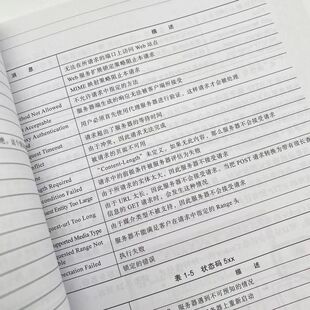 描 述
消 息
无法在所请求的端口上访问 Web 站点
Web 服务扩展锁定策略阻止本请求
MIME 映射策略阻止本请求
不允许请求中指定的方法
thod Not Allowed
服务器生成的响应无法被客户端所接受
Acceptable
用户必须首先使用代理服务器进行验证，这样请求才会被处理
Authentication
请求超出了服务器的等待时间
uest Timeout
由于冲突，因此请求无法完成
flict
被请求的页面不可用
"Content-Length" 未定义。如果无此内容，那么服务器不会接受请求
ngth Required
请求中的前提条件被服务器评估为失败
ondition Failed
由于所请求的实体太大，因此服务器不会接受请求
st Entity Too Large
由于 URL 太长，因此服务器不会接受请求。当把 POST 请求转换为带有很长查
信息的 GET 请求时，会发生这种情况
uest-url Too Long
由于媒介类型不被支持，因此服务器不会接受请求
upported Media Type
服务器不能满足客户在请求中指定的 Range 头
equested Range Not
执行失败
pectation Failed
锁定的错误
表 1-5 状态码 5xx
描 述
服务器遇到不可预知的情况
服务器上重新启动